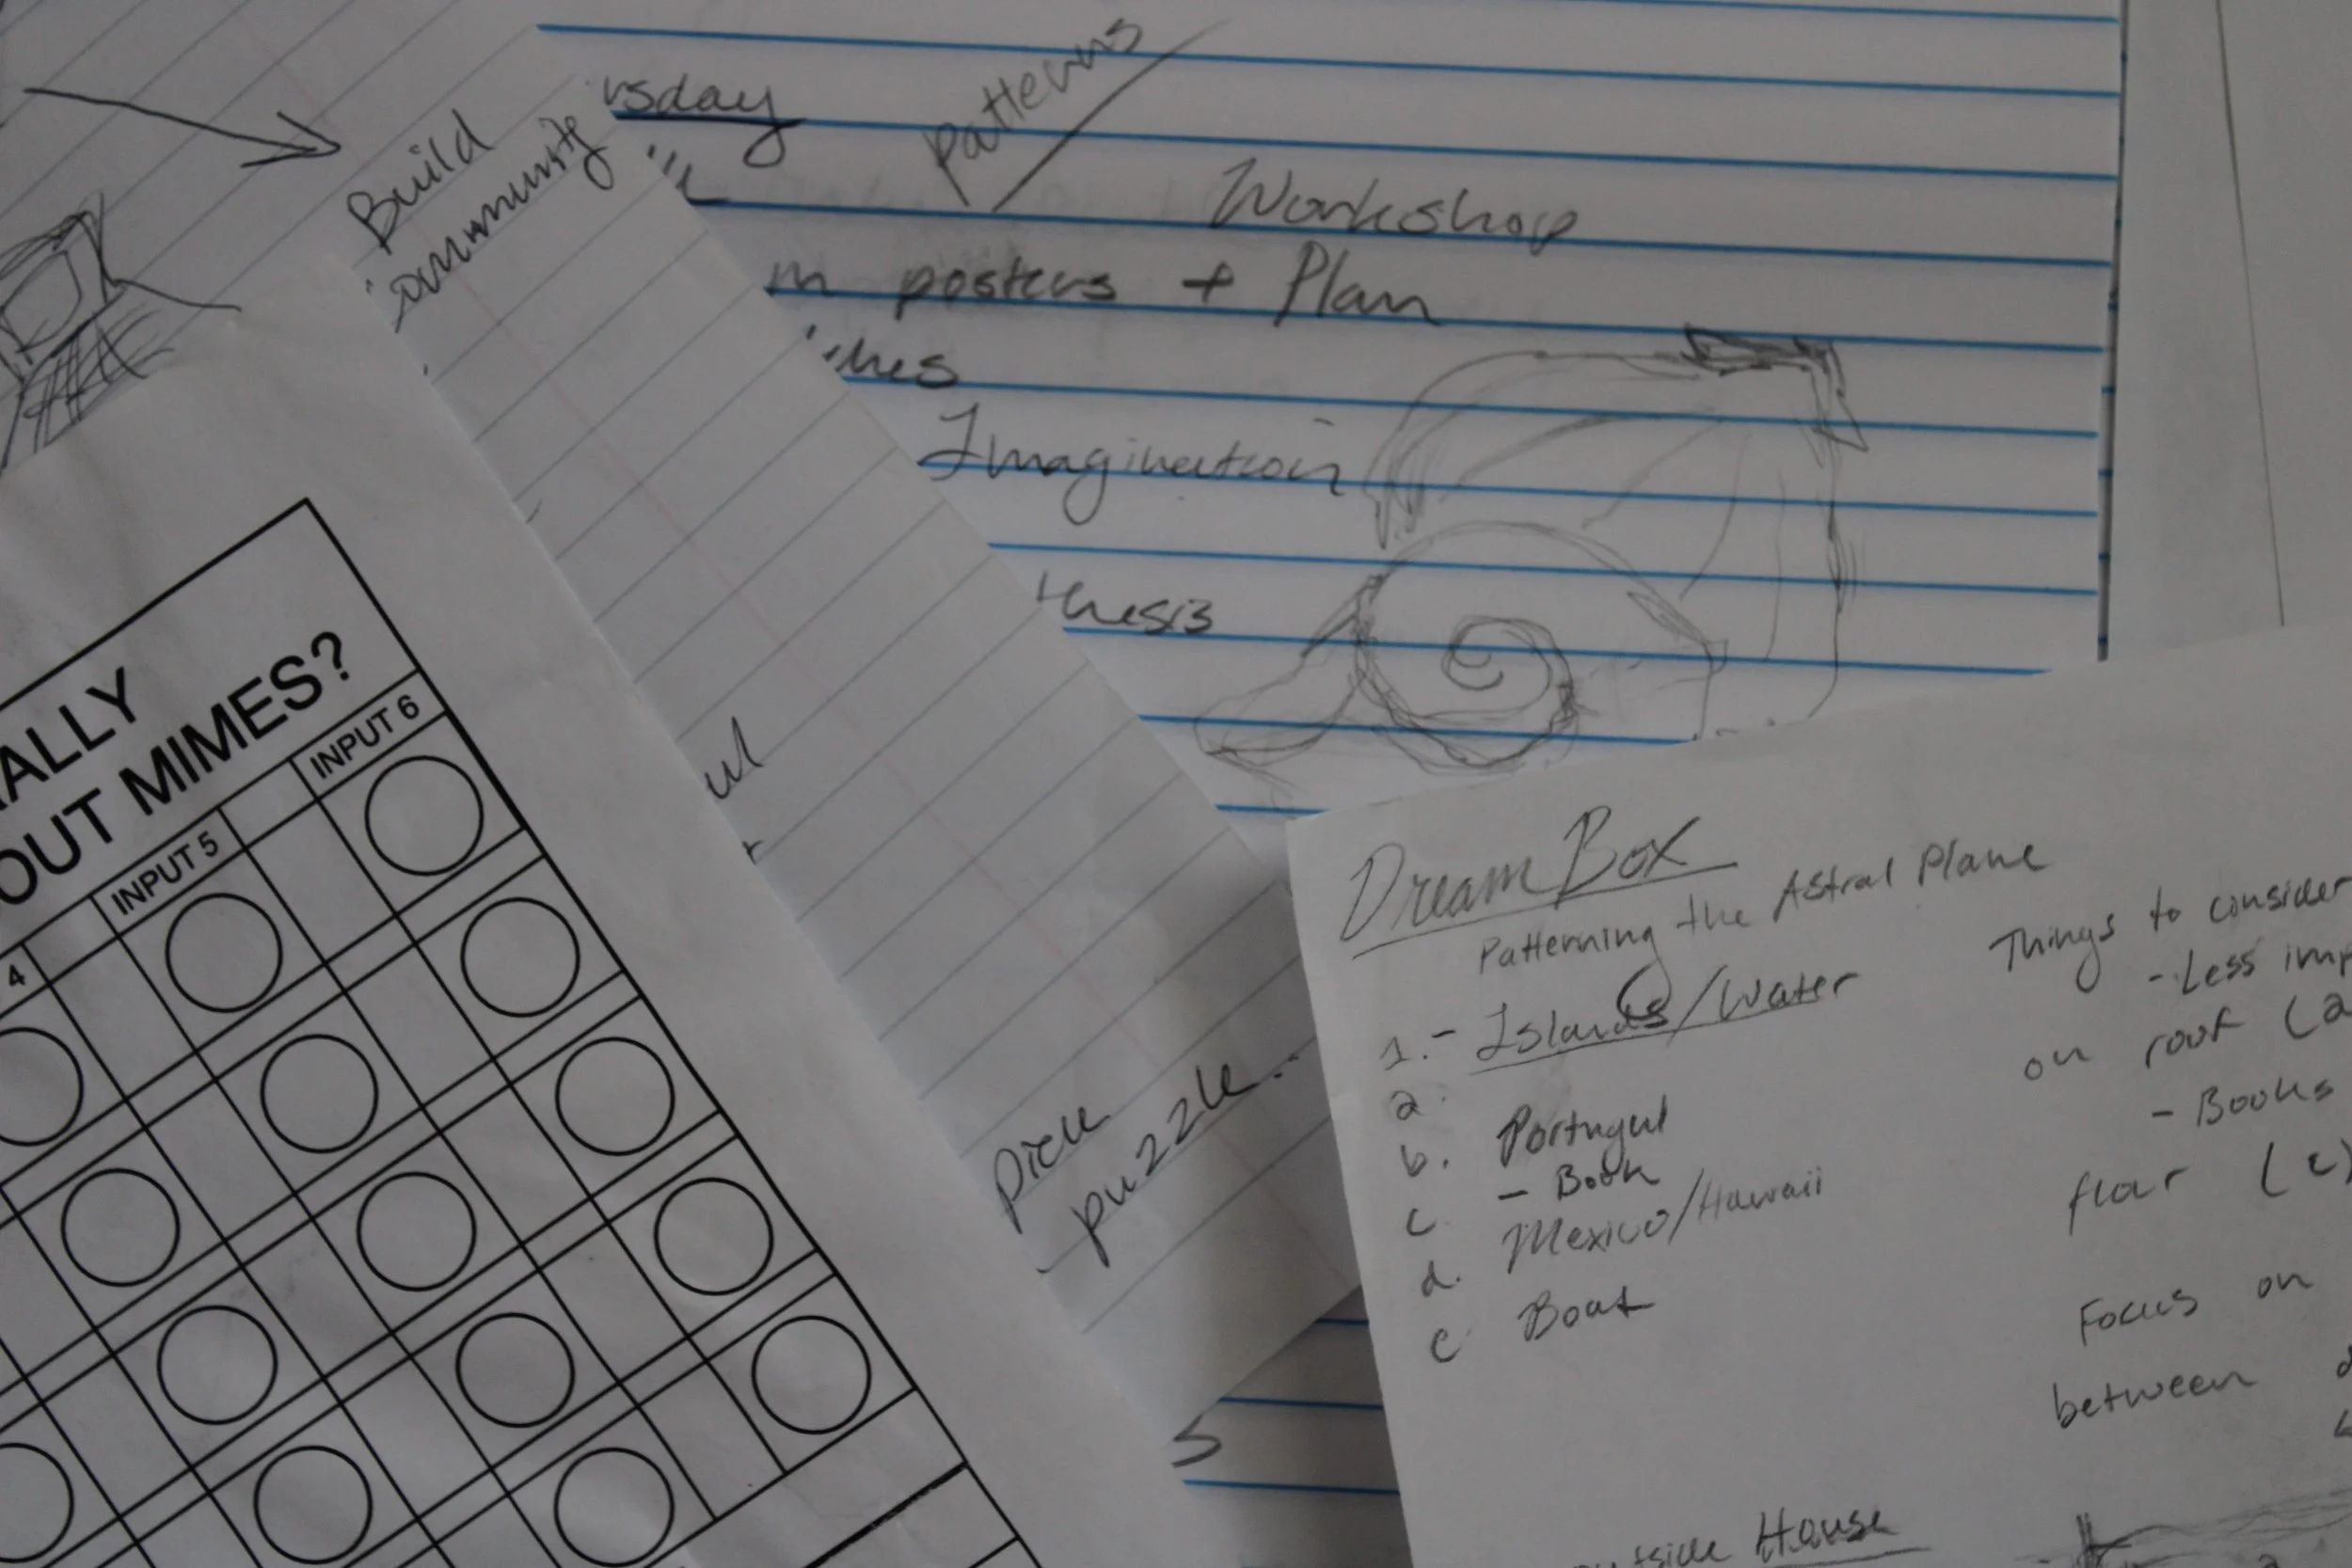 rsday
Patterns
Build
community
Workshop
m posters + Plan
Imagination
thesis
ALLY
OUT MIMES?
INPUT 6
INPUT 5
4
ul
pick
puzzle.
Dream Box
Patterning the Astral Plane
1.- Islands/Water
a.
b. Portugal
- Book
c. Mexico/Hawaii
d.
e. Boat
Things to consider
- Less imp
on roof (a
- Books
Focus on
between
House